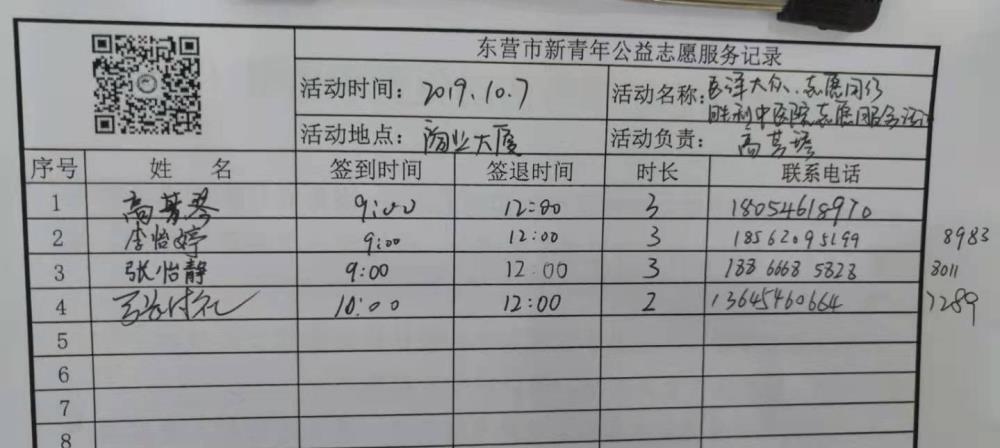 东营市新青年公益志愿服务记录
活动时间：2019.10.7 活动名称：大众、志愿同行
胜利中医院志愿服务活动
活动地点：商业大厦 活动负责：高
序号 姓名 签到时间 签退时间 时长 联系电话
1 高 9:00 12:00 3 18054618970
2 李怡婷 9:00 12:00 3 18562095199 8983
3 张怡静 9:00 12:00 3 18866685828 8011
4 10:00 12:00 2 13645460664 7289
5
6
7
8